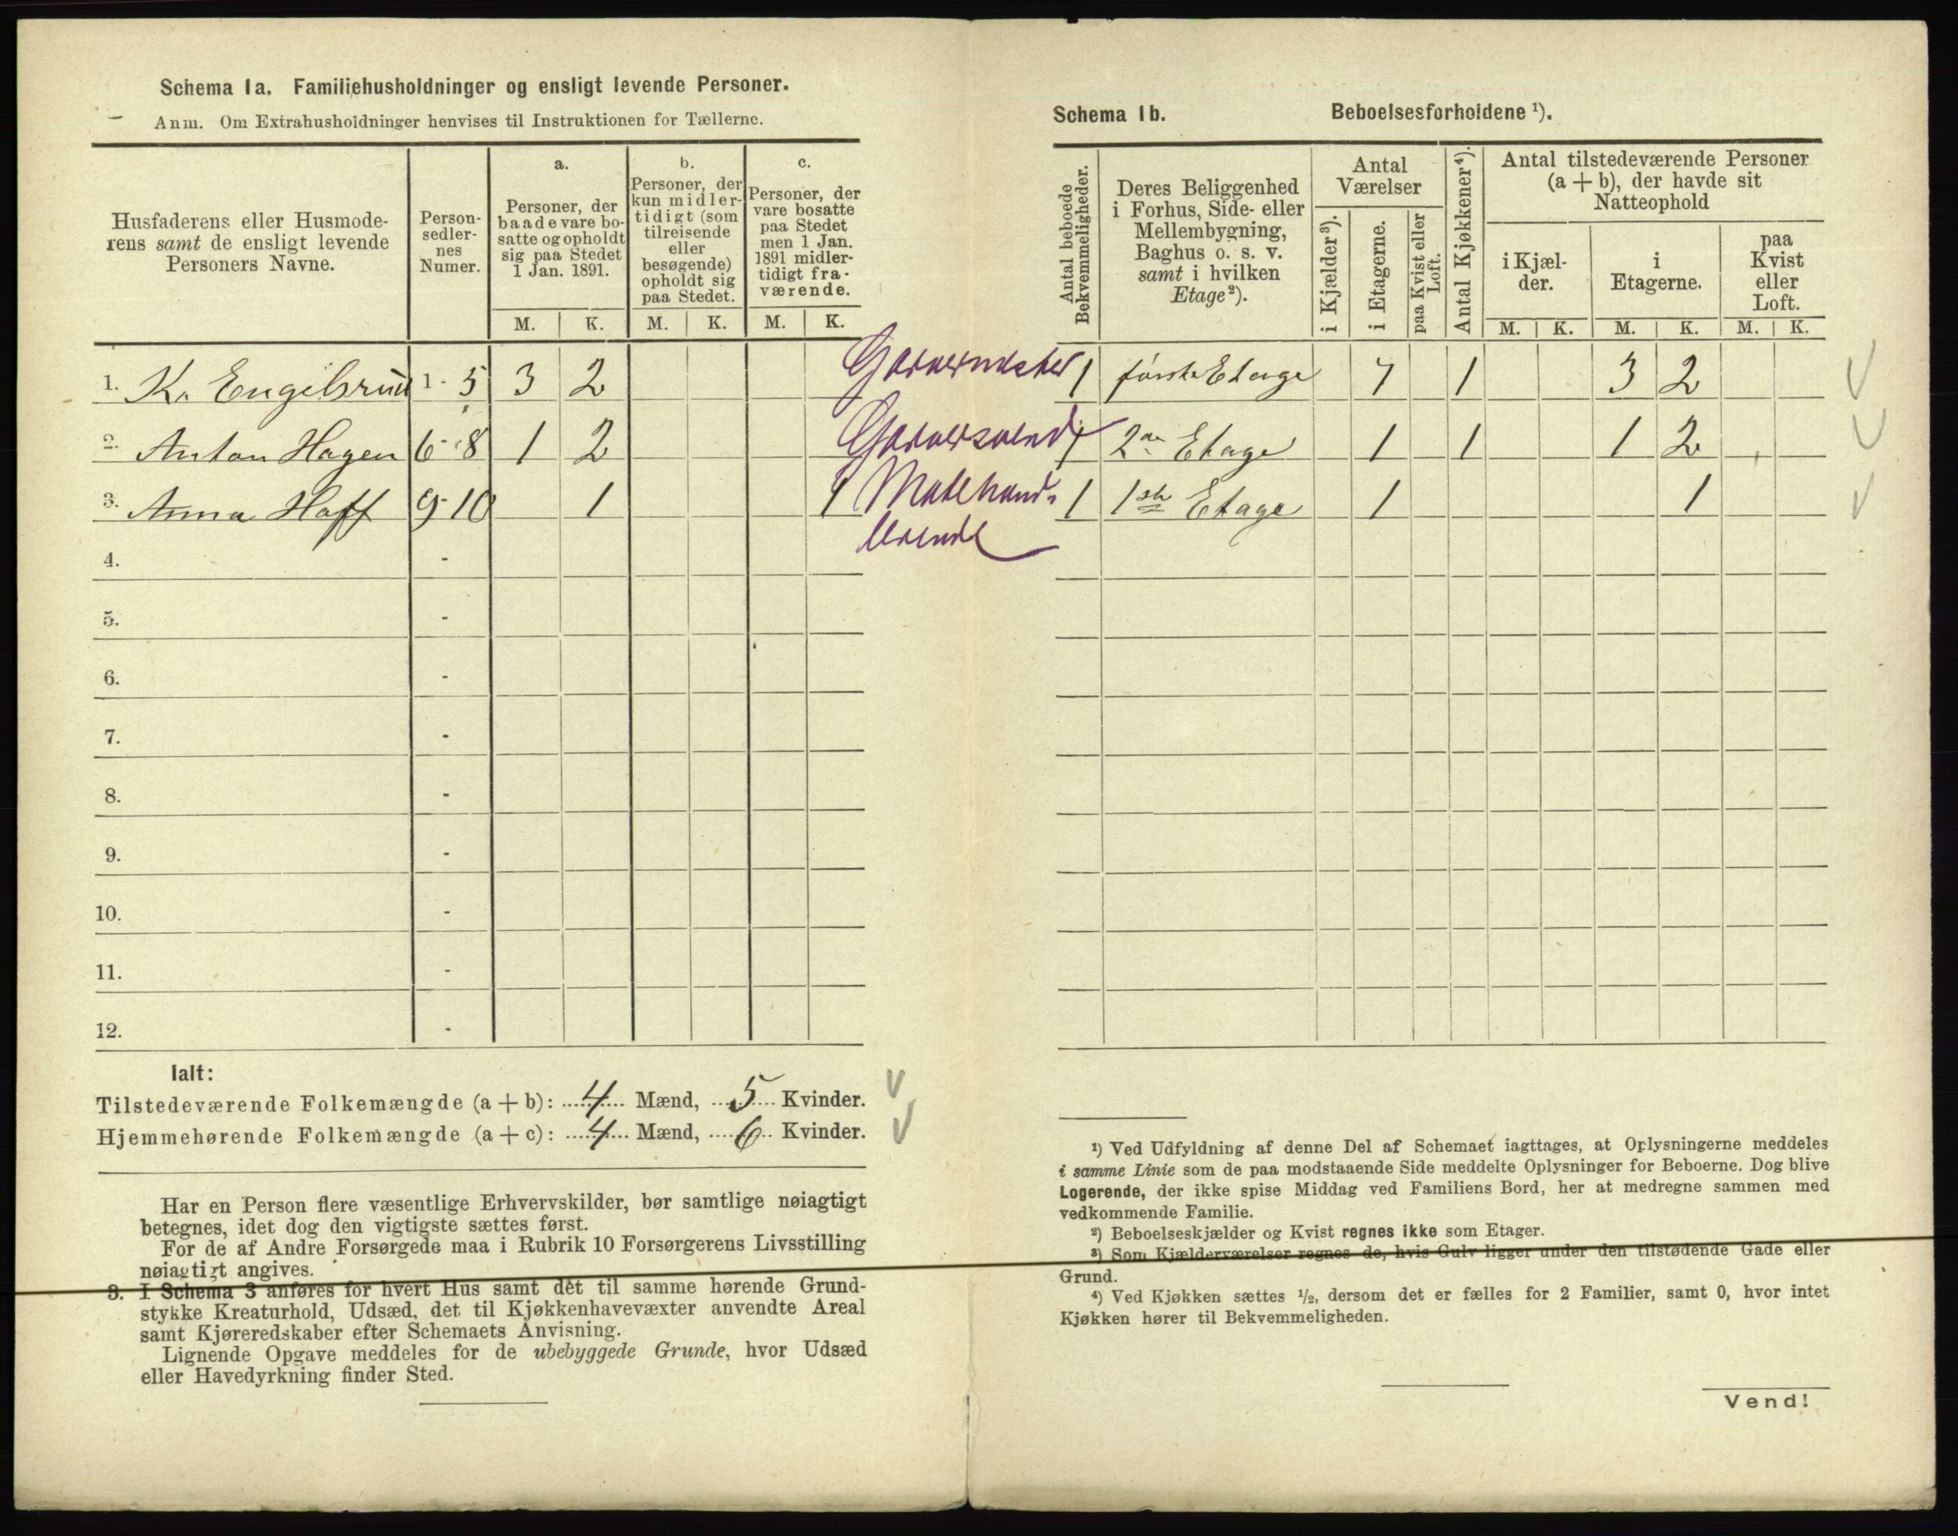 Schema 1a. Familiehusholdninger og ensligt levende Personer.
Anm. Om Extrahusholdninger henvises til Instruktionen for Tællerne.
Husfaderens eller Husmode-
rens samt de ensligt levende
Personers Navne.
Person-
sedler-
nes
Numer.
a.
Personer, der
baade vare bo-
satte og opholdt
sig paa Stedet
1 Jan. 1891.
b.
Personer, der
kun midler-
tidigt (som
tilreisende
eller
besøgende)
opholdt sig
paa Stedet.
c.
Personer, der
vare bosatte
paa Stedet
men 1 Jan.
1891 midler-
tidigt fra-
værende.
M. K. M. K. M. K.
1. K. Engebrud 1 - 5 3 2 Garvermester
2. Anton Hagen 6 - 8 1 2 Garversvend
3. Anna Hoff 9 - 10 1 1 Madehand-
lerende
4. -
5. -
6. -
7. -
8. -
9. -
10. -
11. -
12. -
Ialt:
Tilstedeværende Folkemængde (a + b): 4 Mænd, 5 Kvinder.
Hjemmehørende Folkemængde (a + c): 4 Mænd, 6 Kvinder.
Har en Person flere væsentlige Erhvervskilder, bør samtlige nøiagtigt
betegnes, idet dog den vigtigste sættes først.
For de af Andre Forsørgede maa i Rubrik 10 Forsørgerens Livsstilling
nøiagtigt angives.
3. I Schema 3 anføres for hvert Hus samt det til samme hørende Grund-
stykke Kreaturhold, Udsæd, det til Kjøkkenhavevæxter anvendte Areal
samt Kjøreredskaber efter Schemaets Anvisning.
Lignende Opgave meddeles for de ubebyggede Grunde, hvor Udsæd
eller Havedyrkning finder Sted.
Schema 1b. Beboelsesforholdene ¹).
Antal beboede
Bekvemmeligheder.
Deres Beliggenhed
i Forhus, Side- eller
Mellembygning,
Baghus o. s. v.
samt i hvilken
Etage²).
Antal
Værelser
i Kjælder³).
i Etagerne.
paa Kvist eller
Loft.
Antal Kjøkkener⁴).
Antal tilstedeværende Personer
(a + b), der havde sit
Natteophold
i Kjæl-
der.
i
Etagerne.
paa
Kvist
eller
Loft.
M. K. M. K. M. K.
1 første Etage 7 1 3 2
1 2den Etage 1 1 1 2
1 1ste Etage 1 1
¹) Ved Udfyldning af denne Del af Schemaet iagttages, at Oplysningerne meddeles
i samme Linie som de paa modstaaende Side meddelte Oplysninger for Beboerne. Dog blive
Logerende, der ikke spise Middag ved Familiens Bord, her at medregne sammen med
vedkommende Familie.
²) Beboelseskjælder og Kvist regnes ikke som Etager.
³) Som Kjælderværelser regnes de, hvis Gulv ligger under den tilstødende Gade eller
Grund.
⁴) Ved Kjøkken sættes ¹/₂, dersom det er fælles for 2 Familier, samt 0, hvor intet
Kjøkken hører til Bekvemmeligheden.
Vend!